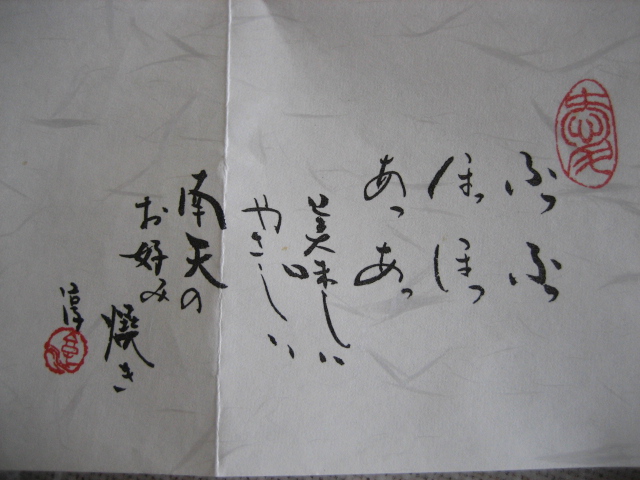 ふっ ふっ
ほっ ほっ
あっ あっ
美味しい
やさしい
南天の
お好み
焼き
淳